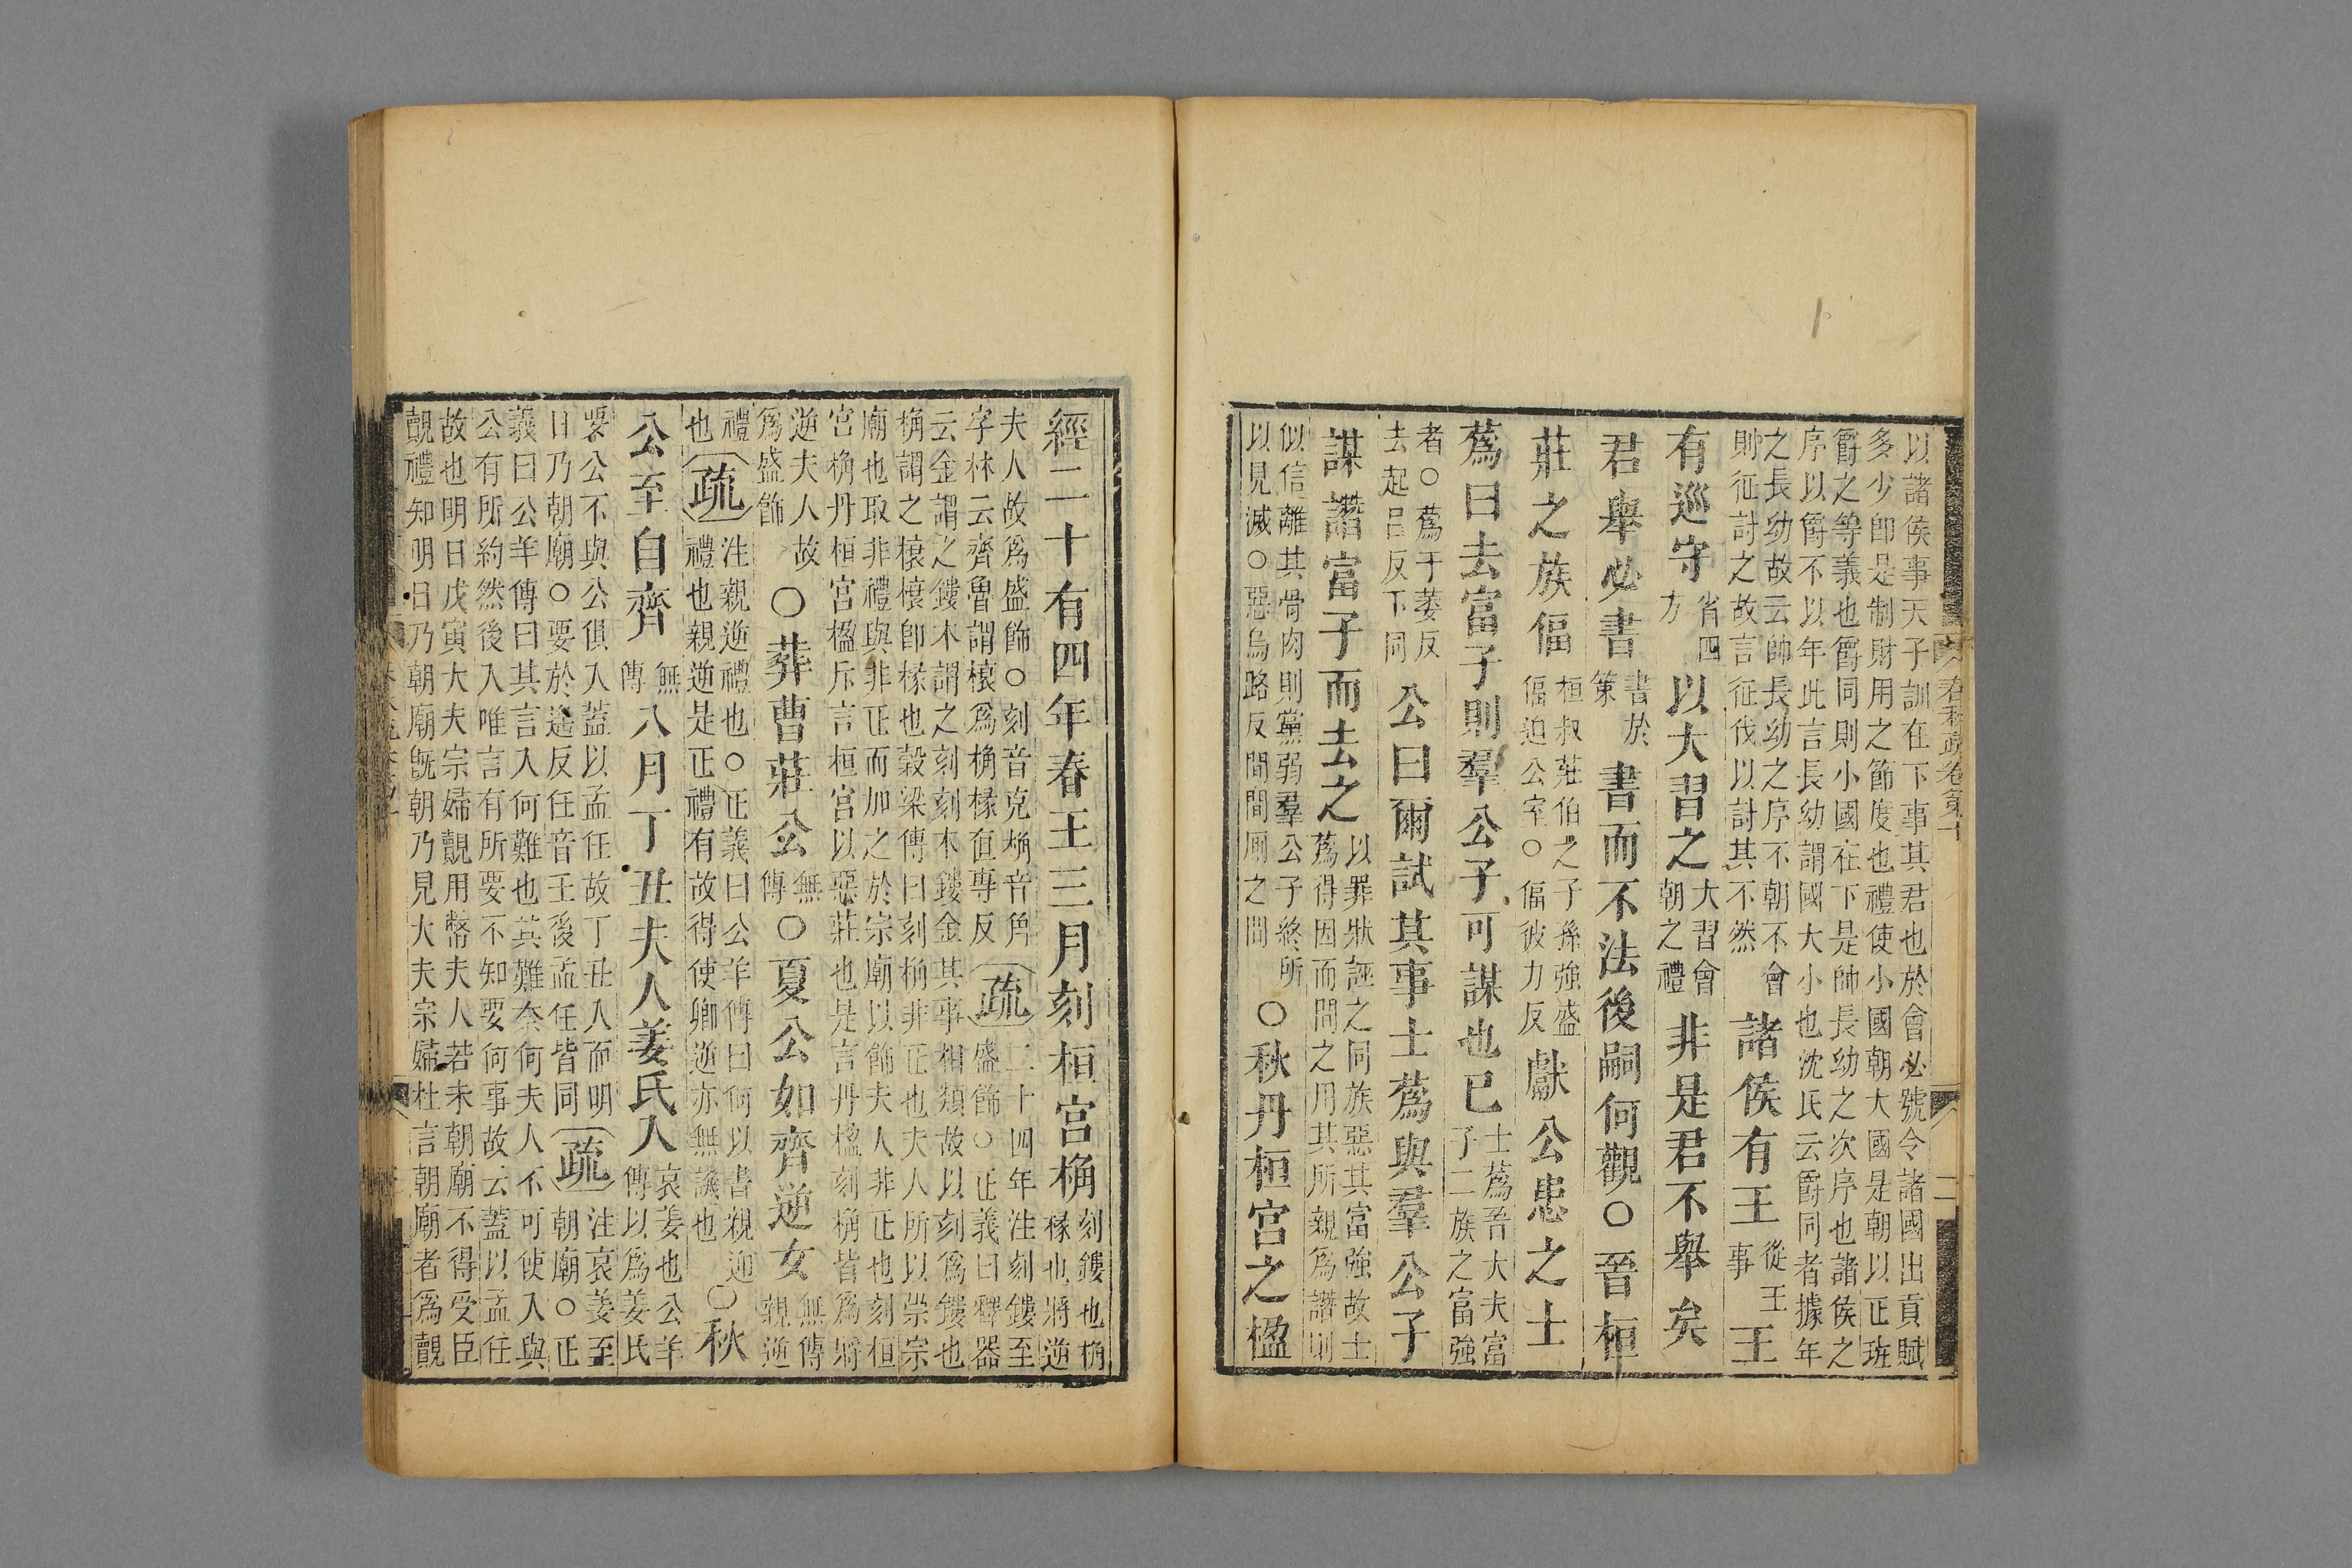 春秋疏卷第十
二
以諸侯事天子訓在下事其君也於會必號令諸國出貢賦
多少即是制財用之節度也禮使小國朝大國是朝以正班
爵之等義也爵同則小國在下是帥長幼之次序也諸侯之
序以爵不以年此言長幼謂國大小也沈氏云爵同者據年
之長幼故云帥長幼之序不朝不會則征討之故言征伐以討其不然諸侯有王從王事王
有巡守省四方以大習之大習會朝之禮非是君不舉矣
君舉必書書於策書而不法後嗣何觀○晉桓
莊之族偪桓叔莊伯之子孫強盛偪迫公室○偪彼力反獻公患之士
蒍曰去富子則羣公子可謀也已士蒍吾大夫富子二族之富強
者○蒍于委反去起呂反下同公曰爾試其事士蒍與羣公子
謀譖富子而去之以罪狀誣之同族惡其富強故士蒍得因而間之用其所親爲譖則
似信離其骨肉則黨弱羣公子終所以見滅○惡烏路反間間厠之間○秋丹桓宮之楹
經二十有四年春王三月刻桓宮桷刻鏤也桷椽也將逆
夫人故爲盛飾○刻音克桷音角字林云齊魯謂榱爲桷椽直專反疏二十四年注刻鏤至盛飾○正義曰釋器
云金謂之鏤木謂之刻刻木鏤金其事相類故以刻爲鏤也
桷謂之榱榱即椽也穀梁傳曰刻桷非正也夫人所以崇宗
廟也取非禮與非正而加之於宗廟以飾夫人非正也刻桓
宮桷丹桓宮楹斥言桓宮以惡莊也是言丹楹刻桷皆爲將
逆夫人故爲盛飾○葬曹莊公無傳○夏公如齊逆女無傳親逆
禮也疏注親逆禮也○正義曰公羊傳曰何以書親迎禮也親逆是正禮有故得使卿逆亦無譏也○秋
公至自齊無傳八月丁丑夫人姜氏入哀姜也公羊傳以爲姜氏
要公不與公俱入蓋以孟任故丁丑入而明日乃朝廟○要於遙反任音壬後孟任皆同疏注哀姜至朝廟○正
義曰公羊傳曰其言入何難也其難奈何夫人不可使入與
公有所約然後入唯言有所要不知要何事故云蓋以孟任
故也明日戊寅大夫宗婦覿用幣夫人若未朝廟不得受臣
覿禮知明日乃朝廟既朝乃見大夫宗婦杜言朝廟者爲覿